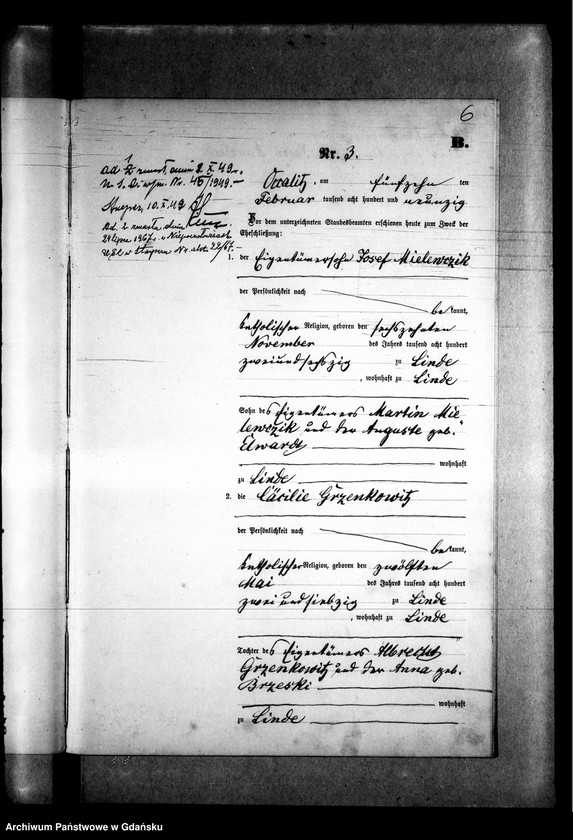 6
B.
Nr. 3.
ad 1 zmarł dnia 8. X 49 r.
N. S. D. w/m. Nr. 45/1949.-
10. X. 49
Ad. 2 zmarła dnia
24 lipca 1967 r. w
USC w Nr. aktu 22/67.-
Occalitz, am fünfzehn ten
Februar tausend acht hundert und neunzig
Vor dem unterzeichneten Standesbeamten erschienen heute zum Zweck der
Eheschließung:
1. der Eigentümersohn Josef Mielewczik
der Persönlichkeit nach
be kannt,
katholischer Religion, geboren den sechszehnten
November des Jahres tausend acht hundert
zweiundsechszig zu Linde
, wohnhaft zu Linde
Sohn des Eigentümers Martin Mie
lewczik und der Auguste geb.
Elwardt
wohnhaft
zu Linde
2. die Cäcilie Grzenkowitz
der Persönlichkeit nach
be kannt,
katholischer Religion, geboren den zwölften
Mai des Jahres tausend acht hundert
zwei und siebzig zu Linde
, wohnhaft zu Linde
Tochter des Eigentümers Albrecht
Grzenkowitz und der Anna geb.
Brzeski
wohnhaft
zu Linde
Archiwum Państwowe w Gdańsku